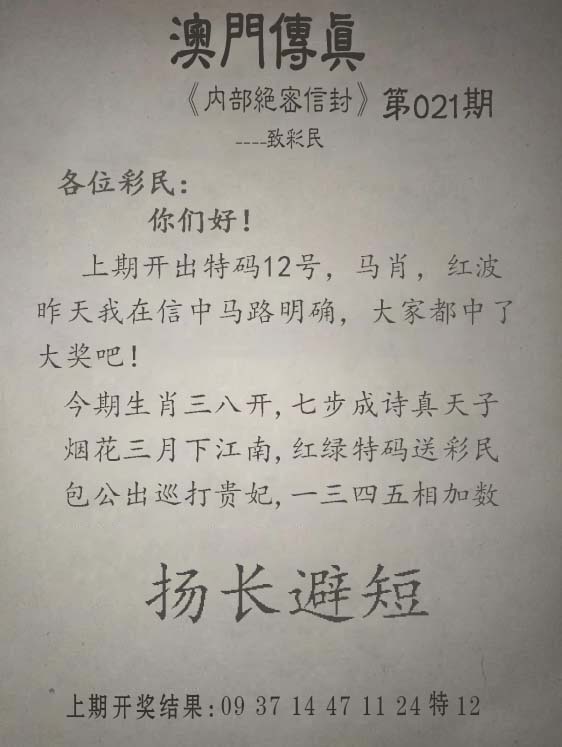 澳門傳眞
《内部絕密信封》第021期
----致彩民
各位彩民：
你们好！
上期开出特码12号，马肖，红波
昨天我在信中马路明确，大家都中了
大奖吧！
今期生肖三八开,七步成诗真天子
烟花三月下江南,红绿特码送彩民
包公出巡打贵妃,一三四五相加数
扬长避短
上期开奖结果:09 37 14 47 11 24 特 12